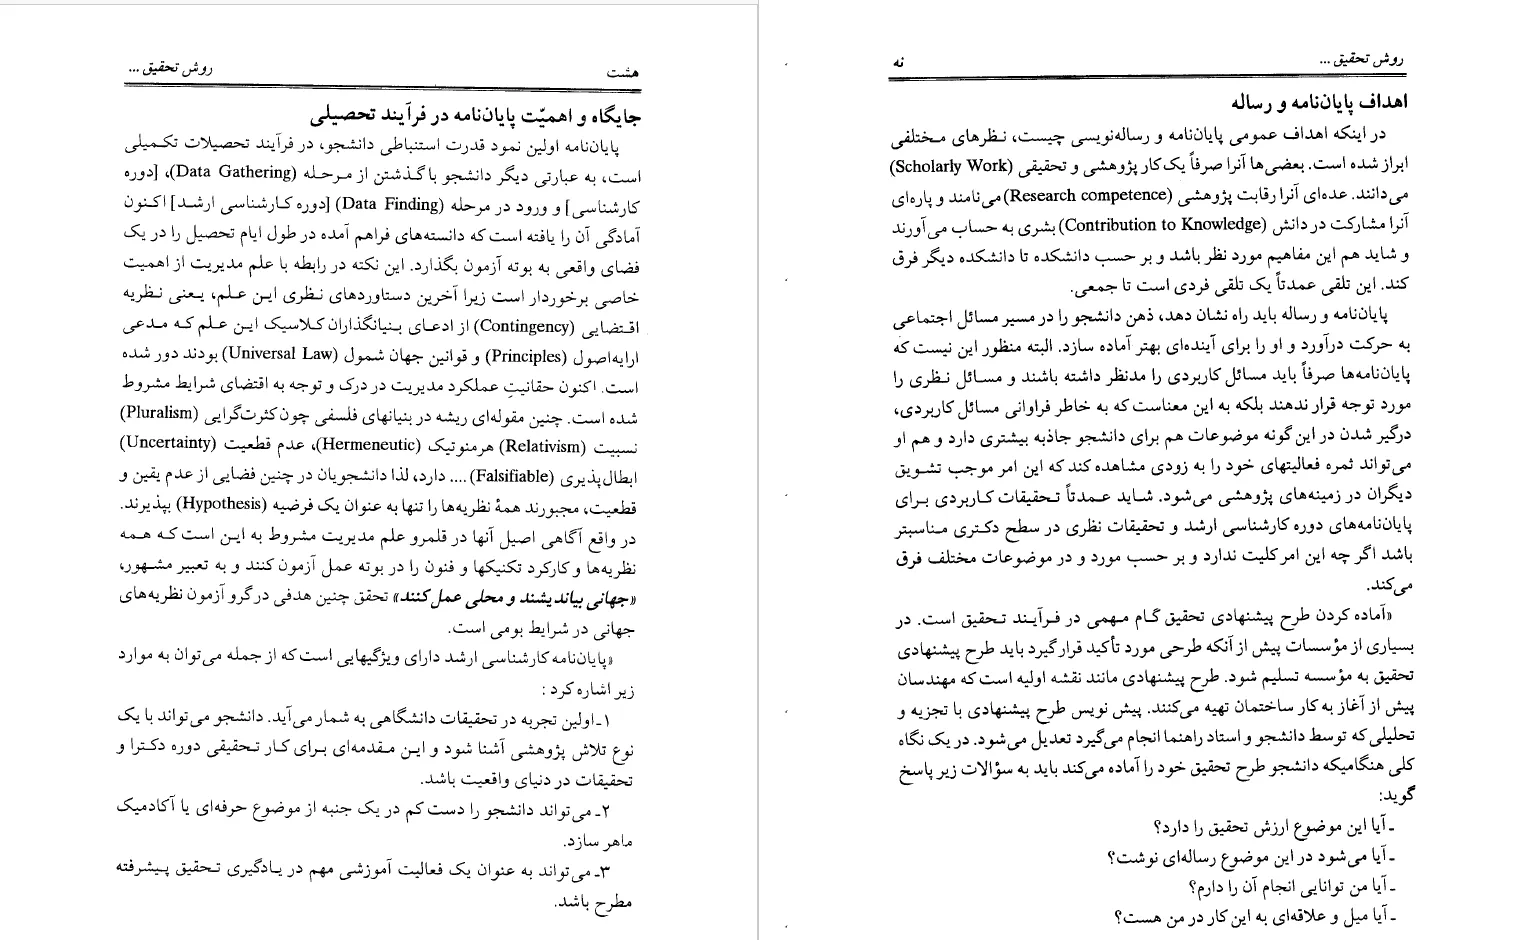 هشت روش تحقیق ...
جایگاه و اهمیّت پایان‌نامه در فرآیند تحصیلی
پایان‌نامه اولین نمود قدرت استنباطی دانشجو، در فرآیند تحصیلات تکمیلی
است، به عبارتی دیگر دانشجو با گذشتن از مرحله (Data Gathering)، [دوره
کارشناسی] و ورود در مرحله (Data Finding) [دوره کارشناسی ارشد] اکنون
آمادگی آن را یافته است که دانسته‌های فراهم آمده در طول ایام تحصیل را در یک
فضای واقعی به بوته آزمون بگذارد. این نکته در رابطه با علم مدیریت از اهمیت
خاصی برخوردار است زیرا آخرین دستاوردهای نظری این علم، یعنی نظریه
اقتضایی (Contingency) از ادعای بنیانگذاران کلاسیک این علم که مدعی
ارایه‌اصول (Principles) و قوانین جهان شمول (Universal Law) بودند دور شده
است. اکنون حقانیتِ عملکرد مدیریت در درک و توجه به اقتضای شرایط مشروط
شده است. چنین مقوله‌ای ریشه در بنیانهای فلسفی چون کثرت‌گرایی (Pluralism)
نسبیت (Relativism) هرمنوتیک (Hermeneutic)، عدم قطعیت (Uncertainty)
ابطال‌پذیری (Falsifiable) .... دارد، لذا دانشجویان در چنین فضایی از عدم یقین و
قطعیت، مجبورند همهٔ نظریه‌ها را تنها به عنوان یک فرضیه (Hypothesis) بپذیرند.
در واقع آگاهی اصیل آنها در قلمرو علم مدیریت مشروط به این است که همه
نظریه‌ها و کارکرد تکنیکها و فنون را در بوته عمل آزمون کنند و به تعبیر مشهور،
«جهانی بیاندیشند و محلی عمل کنند» تحقق چنین هدفی در گرو آزمون نظریه‌های
جهانی در شرایط بومی است.
«پایان‌نامه کارشناسی ارشد دارای ویژگیهایی است که از جمله می‌توان به موارد
زیر اشاره کرد :
۱ـ اولین تجربه در تحقیقات دانشگاهی به شمار می‌آید. دانشجو می‌تواند با یک
نوع تلاش پژوهشی آشنا شود و این مقدمه‌ای برای کار تحقیقی دوره دکترا و
تحقیقات در دنیای واقعیت باشد.
۲ـ می‌تواند دانشجو را دست کم در یک جنبه از موضوع حرفه‌ای یا آکادمیک
ماهر سازد.
۳ـ می‌تواند به عنوان یک فعالیت آموزشی مهم در یادگیری تحقیق پیشرفته
مطرح باشد.
روش تحقیق ... نه
اهداف پایان‌نامه و رساله
در اینکه اهداف عمومی پایان‌نامه و رساله‌نویسی چیست، نظرهای مختلفی
ابراز شده است. بعضی‌ها آنرا صرفاً یک کار پژوهشی و تحقیقی (Scholarly Work)
می‌دانند. عده‌ای آنرا رقابت پژوهشی (Research competence) می‌نامند و پاره‌ای
آنرا مشارکت در دانش (Contribution to Knowledge) بشری به حساب می‌آورند
و شاید هم این مفاهیم مورد نظر باشد و بر حسب دانشکده تا دانشکده دیگر فرق
کند. این تلقی عمدتاً یک تلقی فردی است تا جمعی.
پایان‌نامه و رساله باید راه نشان دهد، ذهن دانشجو را در مسیر مسائل اجتماعی
به حرکت درآورد و او را برای آینده‌ای بهتر آماده سازد. البته منظور این نیست که
پایان‌نامه‌ها صرفاً باید مسائل کاربردی را مدنظر داشته باشند و مسائل نظری را
مورد توجه قرار ندهند بلکه به این معناست که به خاطر فراوانی مسائل کاربردی،
درگیر شدن در این گونه موضوعات هم برای دانشجو جاذبه بیشتری دارد و هم او
می‌تواند ثمره فعالیتهای خود را به زودی مشاهده کند که این امر موجب تشویق
دیگران در زمینه‌های پژوهشی می‌شود. شاید عمدتاً تحقیقات کاربردی برای
پایان‌نامه‌های دوره کارشناسی ارشد و تحقیقات نظری در سطح دکتری مناسبتر
باشد اگر چه این امر کلیت ندارد و بر حسب مورد و در موضوعات مختلف فرق
می‌کند.
«آماده کردن طرح پیشنهادی تحقیق گام مهمی در فرآیند تحقیق است. در
بسیاری از مؤسسات پیش از آنکه طرحی مورد تأکید قرار گیرد باید طرح پیشنهادی
تحقیق به مؤسسه تسلیم شود. طرح پیشنهادی مانند نقشه اولیه است که مهندسان
پیش از آغاز به کار ساختمان تهیه می‌کنند. پیش نویس طرح پیشنهادی با تجزیه و
تحلیلی که توسط دانشجو و استاد راهنما انجام می‌گیرد تعدیل می‌شود. در یک نگاه
کلی هنگامیکه دانشجو طرح تحقیق خود را آماده می‌کند باید به سؤالات زیر پاسخ
گوید:
ـ آیا این موضوع ارزش تحقیق را دارد؟
ـ آیا می‌شود در این موضوع رساله‌ای نوشت؟
ـ آیا من توانایی انجام آن را دارم؟
ـ آیا میل و علاقه‌ای به این کار در من هست؟